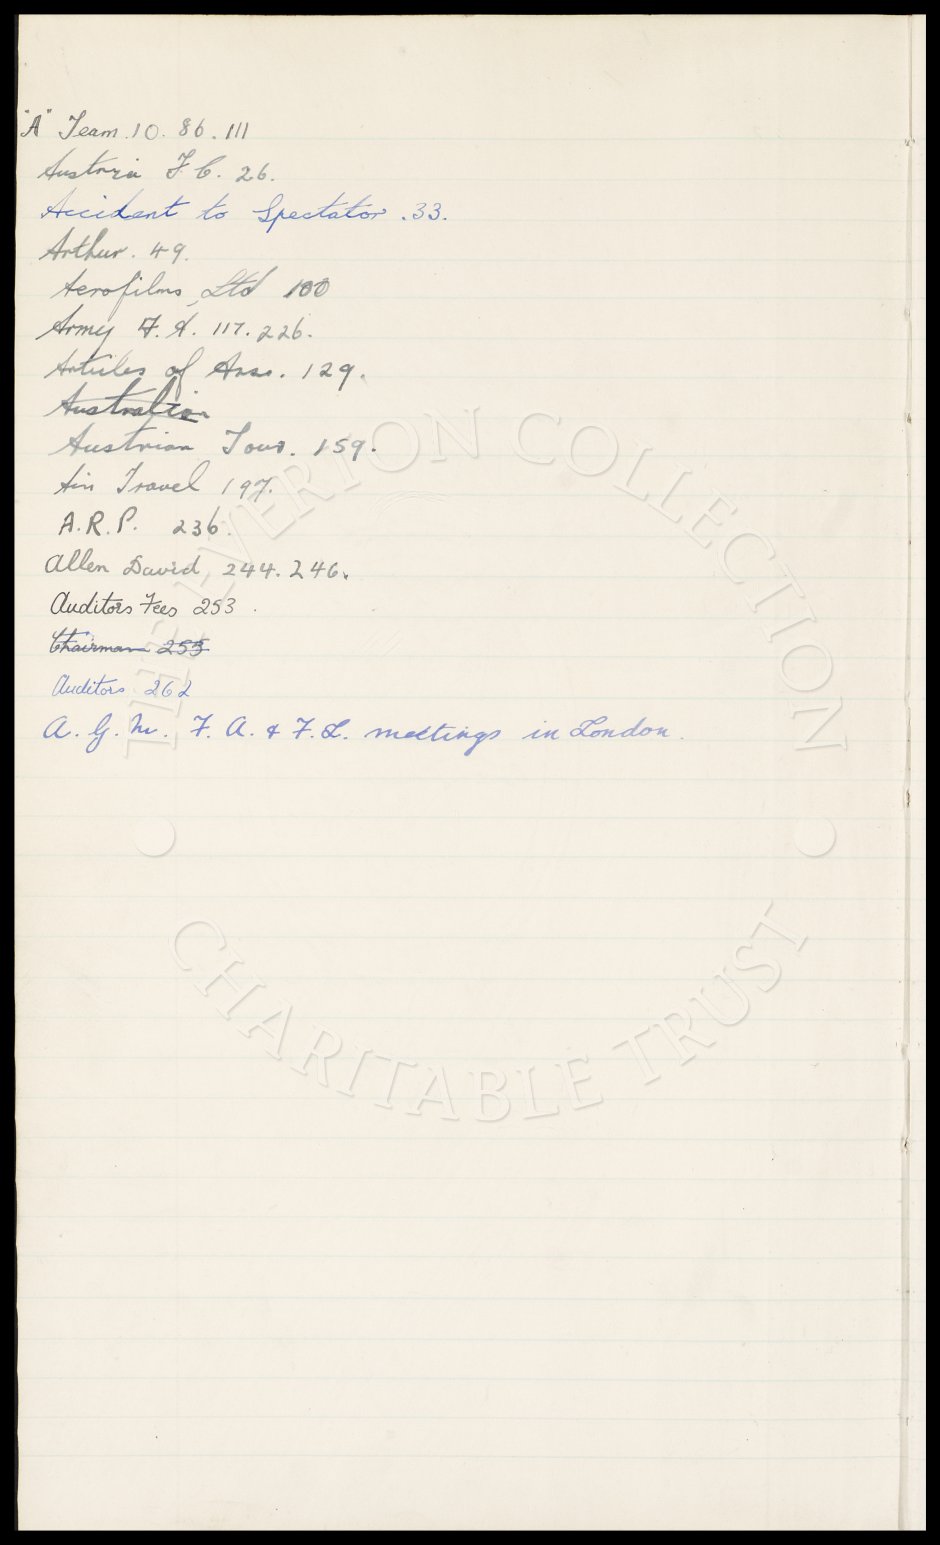 "A" Team. 10. 86. 111
Austria F.C. 26.
Accident to Spectator. 33.
Arthur. 49.
Aerofilms, Ltd 100
Army F.A. 117. 226.
Articles of Asso. 129.
Australian
Austrian Tour. 159.
Air Travel 197.
A.R.P. 236.
Allen David, 244. 246.
Auditors Fees 253.
Chairman 253
Auditors 262
A.G.M. F.A. & F.L. meetings in London.
THE EVERTON COLLECTION
CHARITABLE TRUST